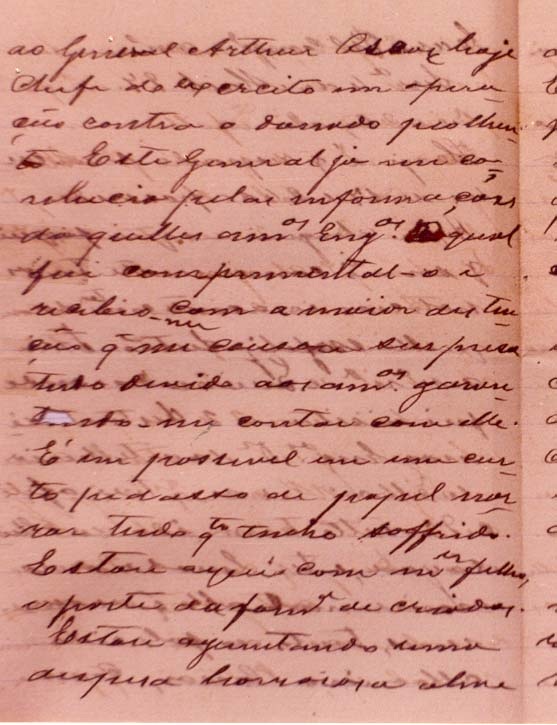 ao General Arthur Oscar, hoje
Chefe do exercito em opera-
ção contra o damnado
Este General já me co-
nhecia pelas informações
daquelles am.os Eng.os qual
fui comprimental-o e
recebeo-me com a maior distin-
ção q. me causou surpresa
tudo devido aos am.os garan-
tindo-me contar com elle.
É im possivel em um cur-
to pedasso de papel nar-
rar tudo q.to tenho soffrido.
Estou aqui com m.s filhos,
e parte da fam.a de criados.
Estou aguentando uma
despesa horrorosa alem